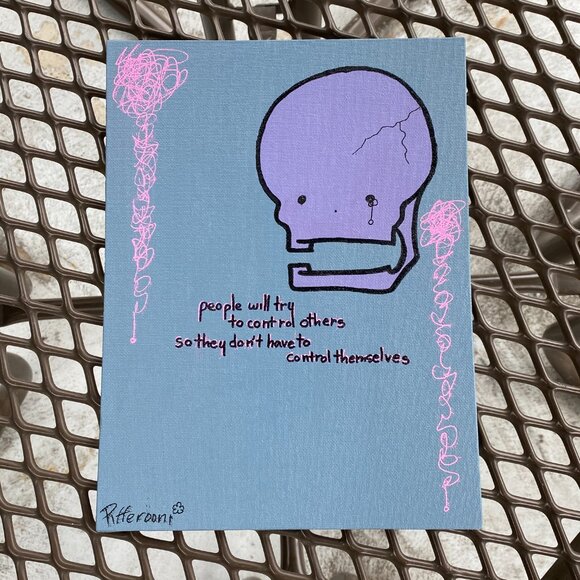 people will try
to control others
so they don't have to
control themselves